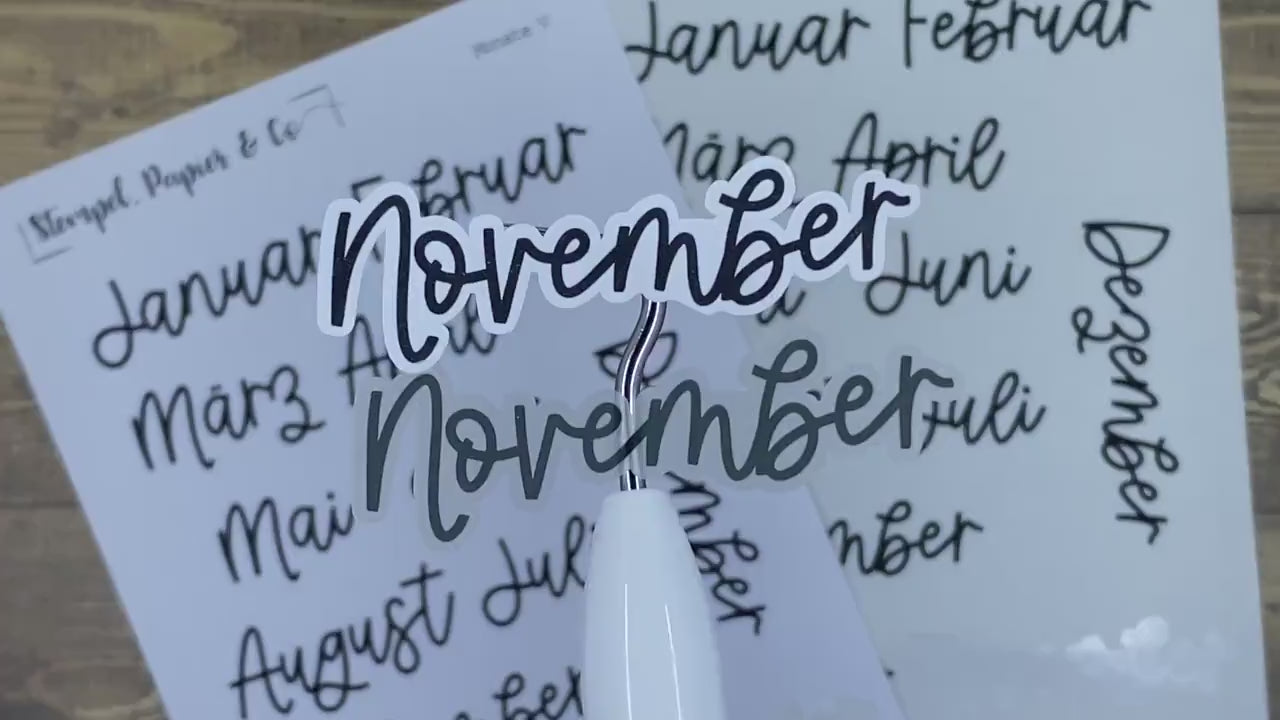 Monate
Stempel, Papier & Co
Januar Februar
März April
Mai
August Juli
mber
Januar Februar
März April
Juni
Juli
mber
Dezember
November
November